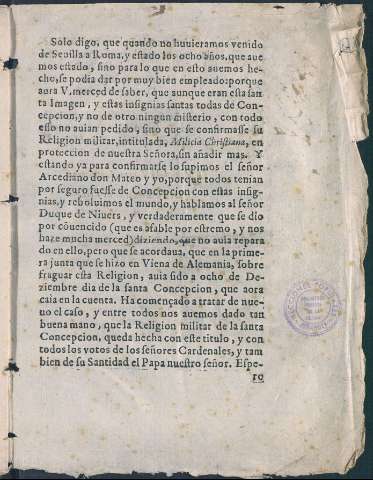 Solo digo, que quando no huuieramos venido
de Seuilla a Roma, y estado los ocho años, que aue
mos estado, sino para lo que en esto auemos he-
cho, se podia dar por muy bien empleado: porque
aora V. merced de saber, que aunque eran esta san
ta Imagen, y estas insignias santas todas de Con-
cepcion, y no de otro ningun misterio, con todo
esso no auian pedido, sino que se confirmasse su
Religion militar, intitulada, Milicia Christiana, en
proteccion de nuestra Señora, sin añadir mas. Y
estando ya para confirmarse, lo supimos el señor
Arcediano don Mateo y yo, porque todos tenian
por seguro fuesse de Concepcion con estas insig-
nias, y reboluimos el mundo, y hablamos al señor
Duque de Niuers, y verdaderamente que se dio
por cõuencido (que es afable por estremo, y nos
haze mucha merced) diziendo, que no auia repara
do en ello, pero que se acordaua, que en la prime-
ra junta que se hizo en Viena de Alemania, sobre
fraguar esta Religion, auia sido a ocho de De-
ziembre dia de la santa Concepcion, que aora
caia en la cuenta. Ha començado a tratar de nue-
uo el caso, y entre todos nos auemos dado tan
buena mano, que la Religion militar de la santa
Concepcion, queda hecha con este titulo, y con
todos los votos de los señores Cardenales, y tam
bien de su Santidad el Papa nuestro señor. Espe-
ro